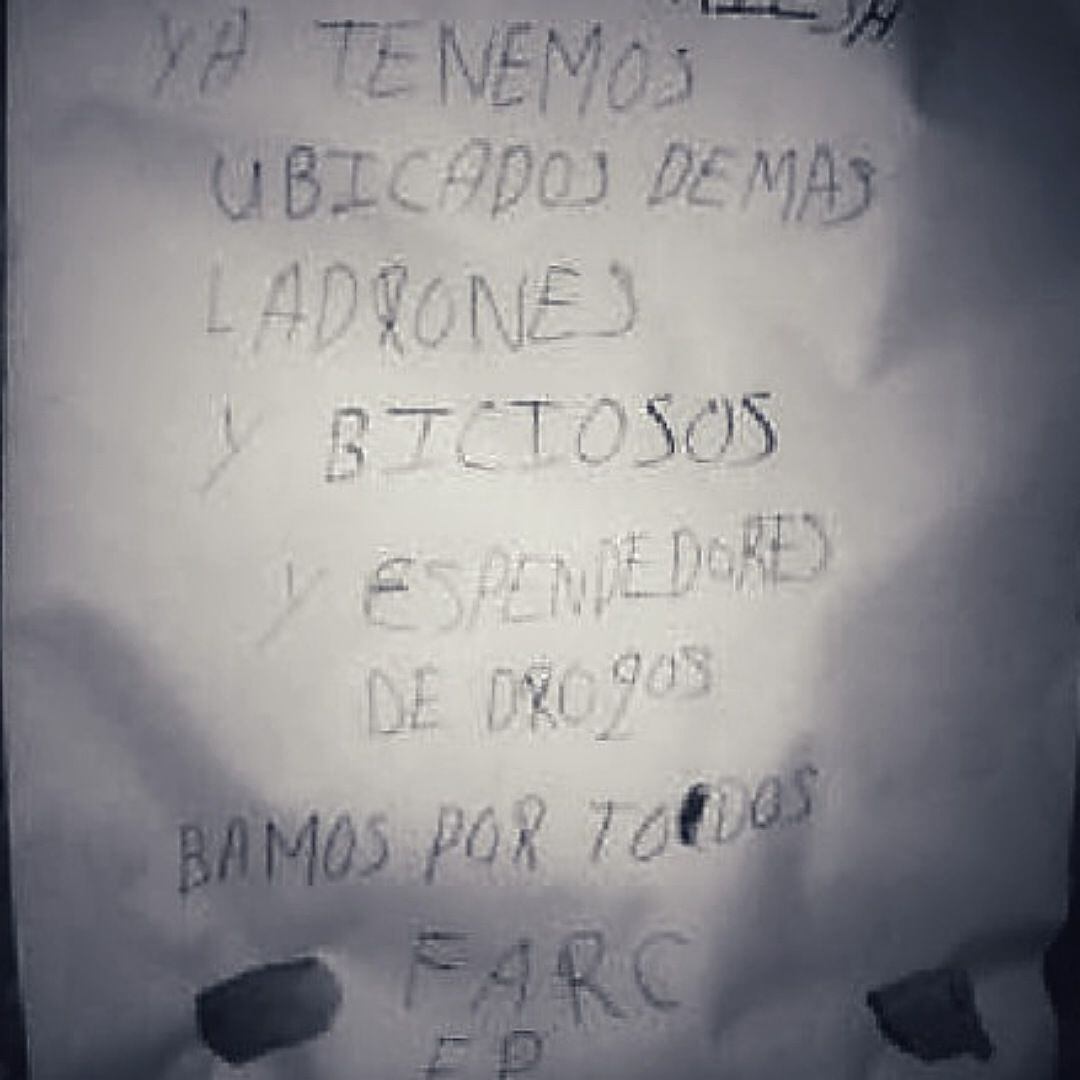 YA TENEMOS
UBICADOS DEMAS
LADRONES
Y BICIOSOS
Y ESPENDEDORES
DE DROgas
BAMOS POR TODOS
FARC
EP